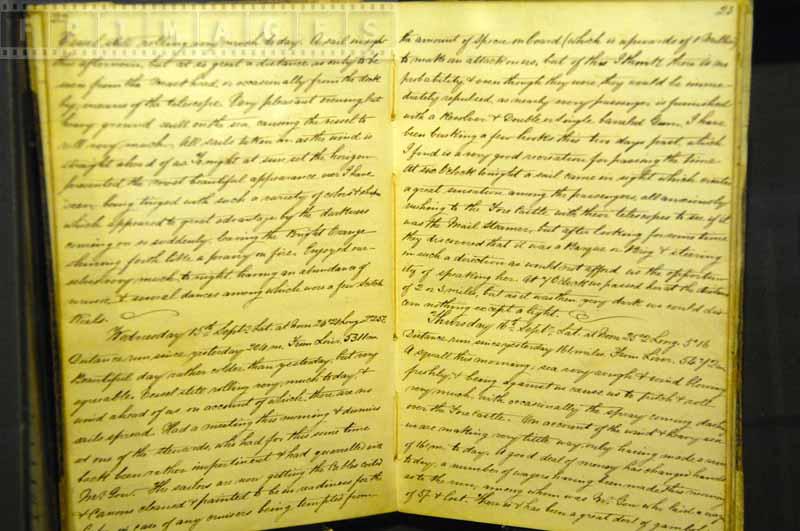 Vessel still rolling very much today. A sail in sight
this afternoon, but at so great a distance as only to be
seen from the Mast head, or occasionally from the deck
by means of the telescope. Very pleasant evening but
heavy ground swell on the sea causing the vessel to
roll very much. All sails taken in as the wind is
straight ahead of us. To night at sun set the horizon
presented the most beautiful appearance ever I have
seen being tinged with such a variety of colors & shapes
which appeared to great advantage by the darkness
coming on so suddenly, leaving the Bright Orange
shining forth like a prairy on fire. Enjoyed our-
selves very much to night having an abundance of
music & several dances among which were a few Scotch
Reels.
Wednesday 15th Sept. Lat. at Noon 24° Long
Distance run since yesterday m. From Liver. 5311 m
Beautiful day rather colder than yesterday, but very
agreeable. Vessel still rolling very much today, &
wind ahead of us on account of which, there are no
sails spread. Had a meeting this morning & dismiss
ed one of the stewards, who had for this some time
back been rather impertinent & had quarrelled with
Mr. Gow. The sailors are now getting the Cables coiled
& Canons cleaned & painted to be in readiness for the
in case of any cruisers being tempted from
23
the amount of Specie on board (which is upwards of
to make an attack on us, but of this I think there is no
probability & even though they were, they would be imme-
diately repulsed, as nearly every passenger is furnished
with a Revolver & Double or Single barreled Gun. I have
been binding a few books this two days past, which
I find is a very good recreation for passing the time
At six O'clock tonight a sail came in sight which created
a great sensation among the passengers, all anxiously
rushing to the Fore Castle with their telescopes to see if it
was the Mail Steamer, but after looking for some time
they discovered that it was a Barque or Brig & steering
in such a direction as would not afford us the opportun-
ity of speaking her. At 7 O'Clock we passed her at the distance
of 2 or 3 miles, but as it was then very dark we could dis-
cern nothing except a light.
Thursday 16th Sept. Lat. at Noon 25° Long. 5°16
Distance run since yesterday 161 miles. From Liver. 5472 m
A squall this morning, sea very rough & wind blowing
freshly, & being against us causes us to pitch & roll
very much, with occasionally the spray coming dashing
over the Fore Castle. On account of the wind & heavy sea
we are making very little way, only having made a run
of 161 m. to day. A good deal of money has changed hands
today, a number of wagers having been made this morning
as to the run, among whom was Mr. Gow who laid a wager
of £7 & lost. There is & has been a great deal of gambl
FRTIMAGES